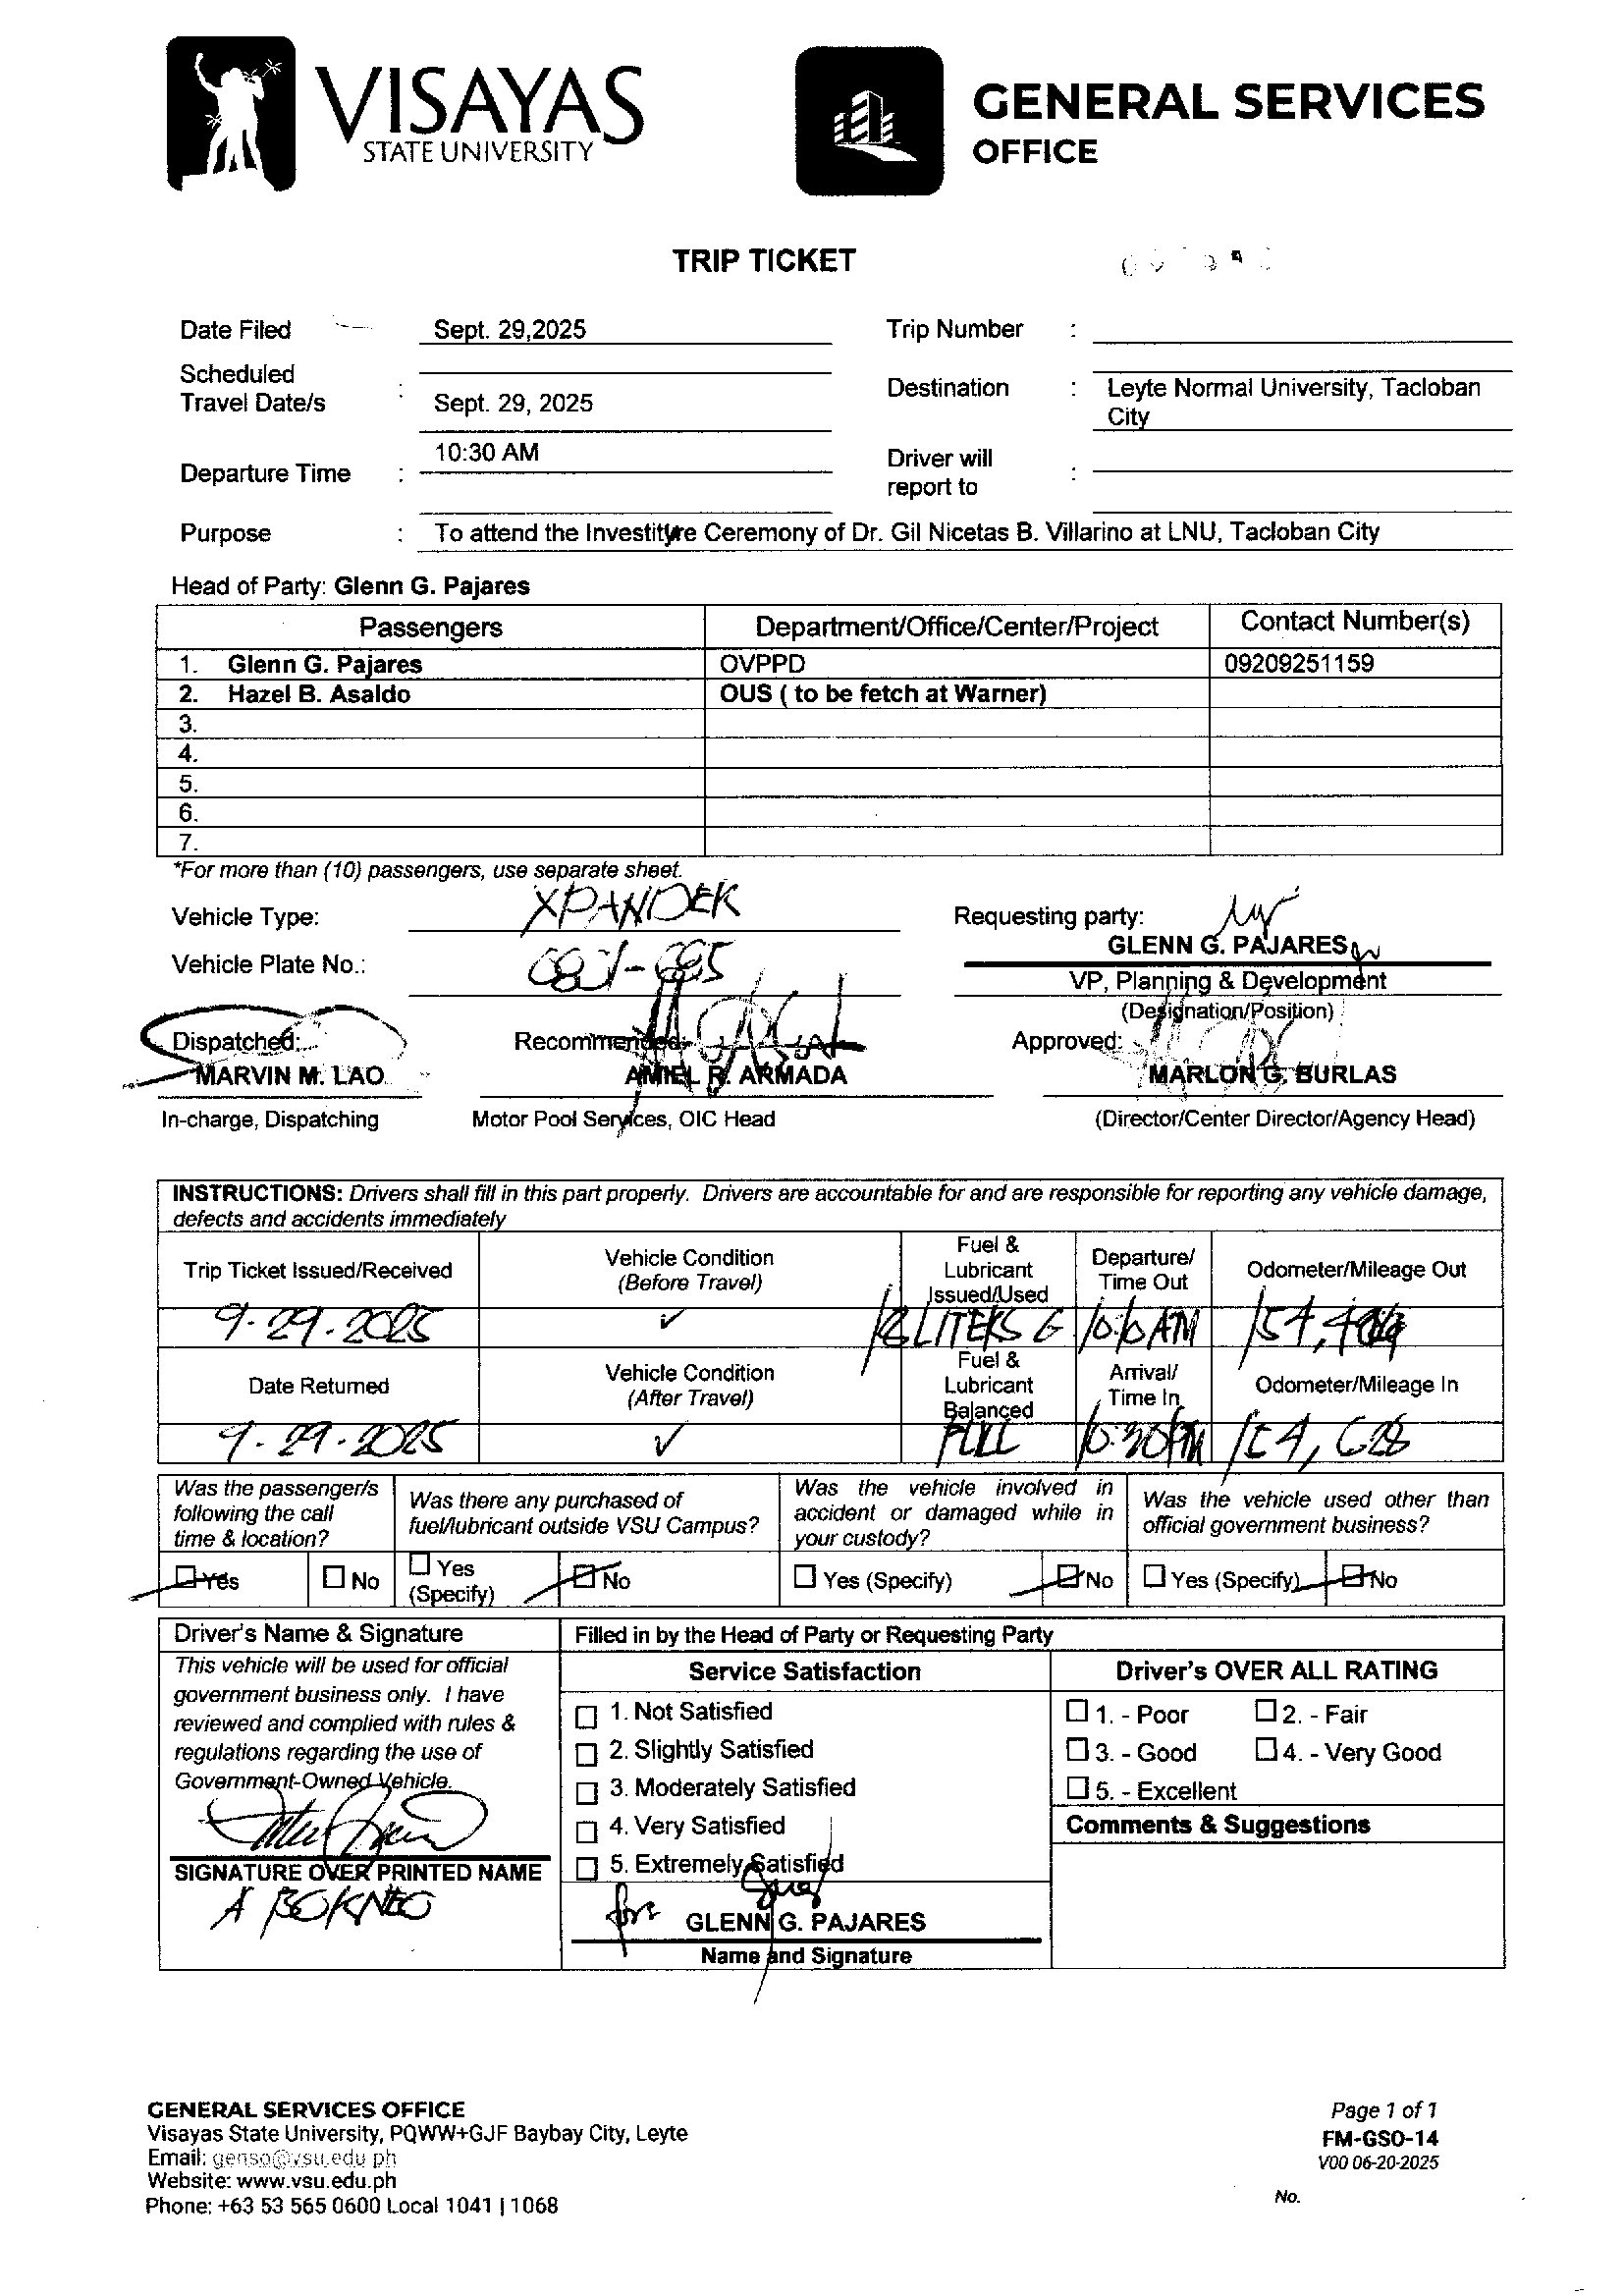 VISAYAS
STATE UNIVERSITY
GENERAL SERVICES
OFFICE
TRIP TICKET
Date Filed Sept. 29,2025 Trip Number :
Scheduled
Travel Date/s : Sept. 29, 2025 Destination : Leyte Normal University, Tacloban
City
10:30 AM
Departure Time : Driver will
report to :
Purpose : To attend the Investiture Ceremony of Dr. Gil Nicetas B. Villarino at LNU, Tacloban City
Head of Party: Glenn G. Pajares
Passengers Department/Office/Center/Project Contact Number(s)
1. Glenn G. Pajares OVPPD 09209251159
2. Hazel B. Asaldo OUS ( to be fetch at Warner)
3.
4.
5.
6.
7.
*For more than (10) passengers, use separate sheet.
Vehicle Type: XPANDER Requesting party:
GLENN G. PAJARES
Vehicle Plate No.:
VP, Planning & Development
(Designation/Position)
Dispatched: Recommended: Approved:
MARVIN M. LAO AMIEL R. ARMADA MARLON G. BURLAS
In-charge, Dispatching Motor Pool Services, OIC Head (Director/Center Director/Agency Head)
INSTRUCTIONS: Drivers shall fill in this part properly. Drivers are accountable for and are responsible for reporting any vehicle damage,
defects and accidents immediately
Trip Ticket Issued/Received Vehicle Condition (Before Travel) Fuel & Lubricant Issued/Used Departure/ Time Out Odometer/Mileage Out
9-29-2025 ✓ LITERS AM
Date Returned Vehicle Condition (After Travel) Fuel & Lubricant Balanced Arrival/ Time In Odometer/Mileage In
9-29-2025 ✓ FULL 10:30 PM 154, 628
Was the passenger/s following the call time & location? Was there any purchased of fuel/lubricant outside VSU Campus? Was the vehicle involved in accident or damaged while in your custody? Was the vehicle used other than official government business?
Yes No Yes (Specify) No Yes (Specify) No Yes (Specify) No
Driver's Name & Signature Filled in by the Head of Party or Requesting Party
This vehicle will be used for official
government business only. I have
reviewed and complied with rules &
regulations regarding the use of
Government-Owned Vehicle.
SIGNATURE OVER PRINTED NAME
A BORNEO
Service Satisfaction
1. Not Satisfied
2. Slightly Satisfied
3. Moderately Satisfied
4. Very Satisfied
5. Extremely Satisfied
for GLENN G. PAJARES
Name and Signature
Driver's OVER ALL RATING
1. - Poor 2. - Fair
3. - Good 4. - Very Good
5. - Excellent
Comments & Suggestions
GENERAL SERVICES OFFICE
Visayas State University, PQWW+GJF Baybay City, Leyte
Email: genso@vsu.edu.ph
Website: www.vsu.edu.ph
Phone: +63 53 565 0600 Local 1041 | 1068
Page 1 of 1
FM-GSO-14
V00 06-20-2025
No.